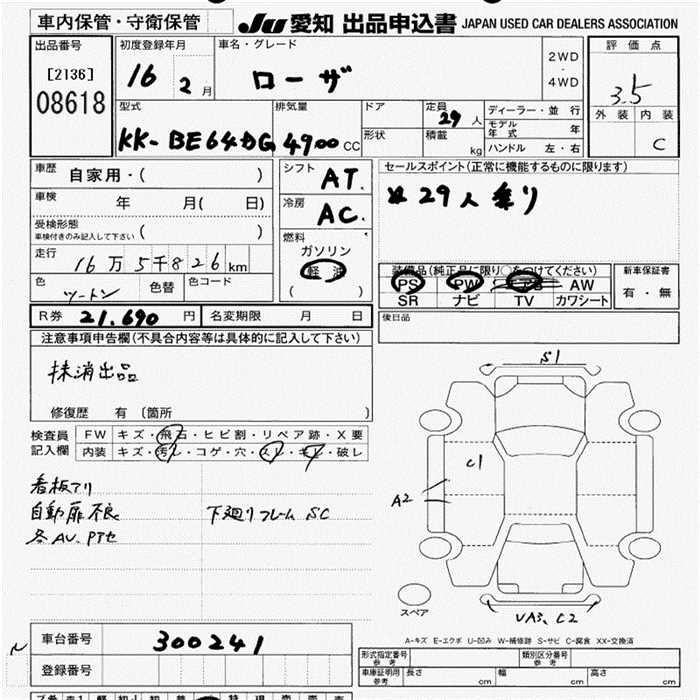 車内保管・守衛保管
JU 愛知 出品申込書 JAPAN USED CAR DEALERS ASSOCIATION
出品番号
[2136]
08618
初度登録年月
16 2月
車名・グレード
ローザ
2WD
・
4WD
評価点
3.5
外装 内装
C
型式
KK-BE64DG
排気量
4900 CC
ドア
形状
定員
29人
積載
kg
ディーラー・並行
モデル年式 年
ハンドル 左・右
車歴
自家用・( )
車検
年 月( 日)
受検形態
車検付きのみ記入して下さい ( )
走行
16万5千826km
色
ツートン
色替
色コード
シフト
AT.
冷房
AC.
燃料
ガソリン
軽油
( )
セールスポイント(正常に機能するものに限ります)
29人乗り
装備品(純正品に限り○をつけてください)
PS PW AW
SR ナビ TV カワシート
新車保証書
有・無
R券 21.690円
名変期限 月 日
後日品
注意事項申告欄(不具合内容等は具体的に記入して下さい)
抹消出品
修復歴 有 〔箇所 〕
検査員記入欄
FW キズ・飛石・ヒビ割・リペア跡・X要
内装 キズ・汚レ・コゲ・穴・スレ・キレ・破レ
看板アリ
自動扉不良
下廻りフレーム SC
S1
C1
A2
UA3、C2
スペア
A-キズ E-エクボ U-凹み W-補修跡 S-サビ C-腐食 XX-交換済
車台番号
300241
登録番号
型式指定番号
参考
類別区分番号
参考
車庫証明用
参考
長さ cm 幅 cm 高さ cm